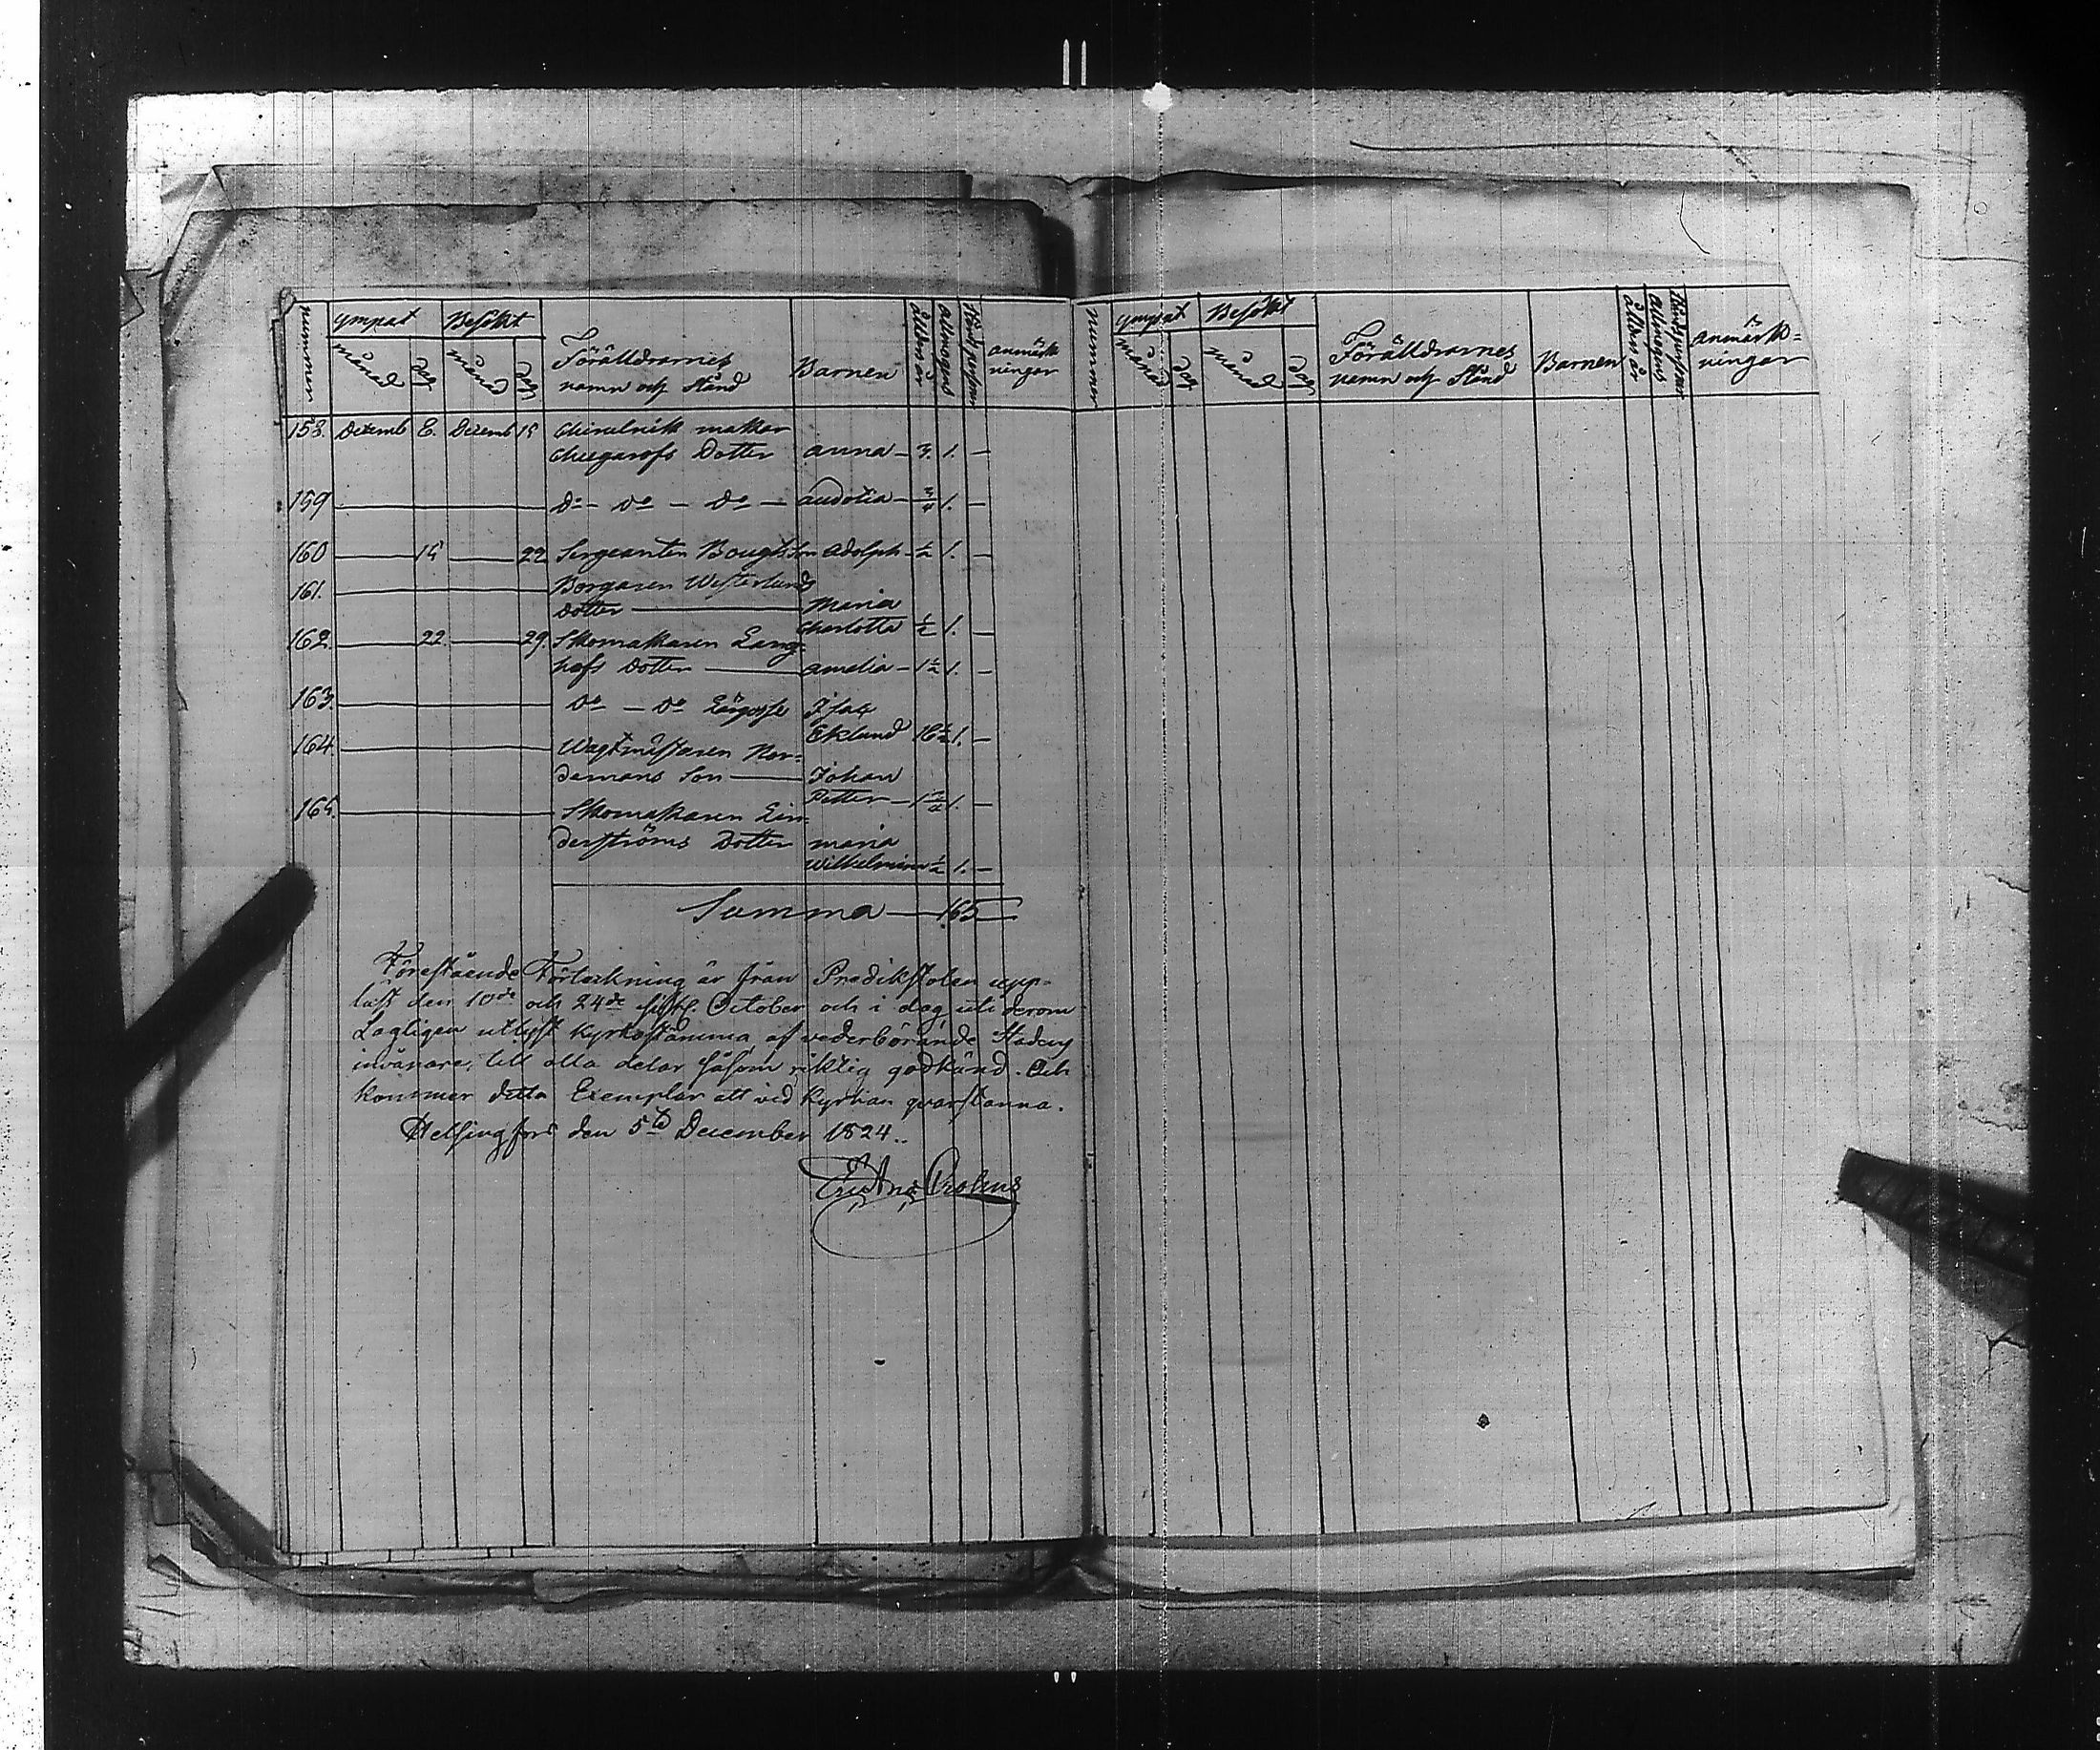 nummer ympat Besökt Föräldrarnes namn och Stånd Barnen ålder år allmogens Ståndspersoner anmärkningar
månad dag månad dag
158. Dezemb 8. Dezemb 15 makar
Dotter anna — 3. 1. —
159 — Do — Do — Do — audotia — 3/4 1. —
160 — 15 — 22 Sergeanten Boughts Son adolph — 1/2 1. —
161. — Borgaren Westerlunds
Dotter — Maria
Charlotta 1/2 1. —
162. — 22. — 29. Skomakaren Lang-
hofs Dotter — amelia — 1 1/2 1. —
163. — Do — Do Lärgosse Isac
Eklund 16 1/2 1. —
164. — Wagtmästaren Nor-
demans Son — Johan
Petter — 1 3/4 1. —
165. — Skomakaren Lin-
derströms Dotter maria
Wilhelmina 1/2 1. —
Summa — 165
Förestående Förteckning är från Predikstolen upp-
läst den 10de och 24de sistl. October och i dag uti derom
Lagligen utlyst Kyrkostämma af vederbörande Stadens
invånare, till alla delar såsom riktig godkänd. Och
kommer detta Exemplar att vid Kyrkan qvarstanna.
Helsingfors den 5te December 1824..
nummer ympat Besökt Föräldrarnes namn och Stånd Barnen ålder år allmogens Ståndspersoner anmärk-
ningar
månad dag månad dag